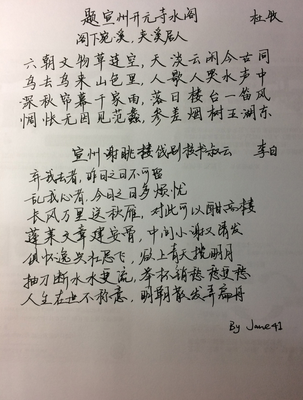 题宣州开元寺水阁 杜牧
阁下宛溪,夹溪居人
六朝文物草连空,天淡云闲今古同
鸟去鸟来山色里,人歌人哭水声中
深秋帘幕千家雨,落日楼台一笛风
惆怅无因见范蠡,参差烟树五湖东
宣州谢眺楼饯别校书叔云 李白
弃我去者,昨日之日不可留
乱我心者,今日之日多烦忧
长风万里送秋雁,对此可以酣高楼
蓬莱文章建安骨,中间小谢又清发
俱怀逸兴壮思飞,欲上青天揽明月
抽刀断水水更流,举杯销愁愁更愁
人生在世不称意,明朝散发弄扁舟
By Jane41